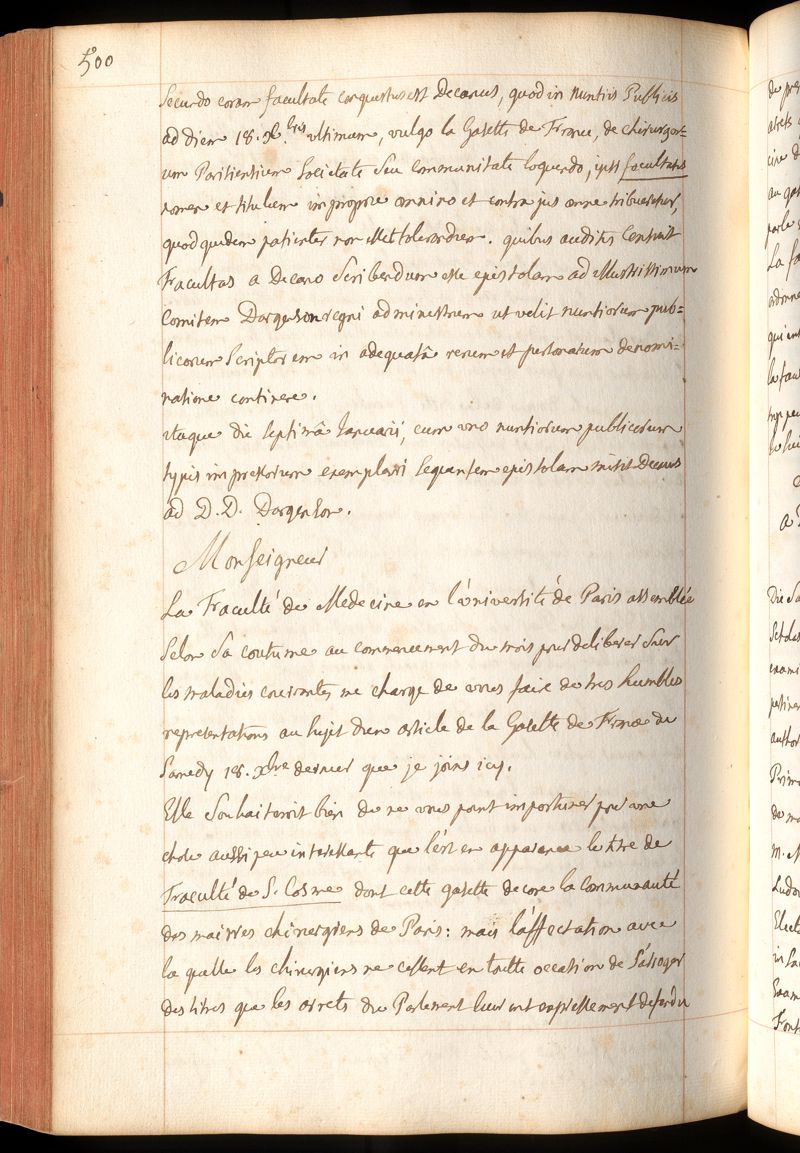 500
Secundo coram facultate conquestus est Decanus, quod in nuntiis Publicis
ad diem 18. Xbris ultimum, vulgo la Gasette de France, de chirurgor=
um Parisiensium Societate seu communitate loquendo, ipsi facultatis
nomen et titulum improprie omnino et contra jus omne tribueretur,
quod quidem patienter non est tolerandum. quibus auditis Censuit
Facultas a Decano scribendum esse epistolam ad illustrissimum
Comitem Dargenson regni administrum ut velit nuntiorum pub=
licorum scriptorem in adequatâ rerum et personarum denomi=
natione continere.
itaque die septimâ Januarii, cum uno nuntiorum publicorum
typis impressorum exemplari sequentem epistolam misit Decanus
ad D. D. Dargenson.
Monseigneur
La Faculté de Medecine en l'université de Paris assemblée
selon sa coutume au commencement du mois pour deliberer sur
les maladies courantes me charge de vous faire de tres humbles
representations au sujet d'un article de la Gasette de France du
Samedy 18. Xbre dernier que je joins icy.
Elle souhaiteroit bien de ne vous point importuner pour une
chose aussi peu interessante que l'est en apparence le titre de
Faculté de S. Cosme dont cette gasette decore la communauté
des maitres chirurgiens de Paris: mais l'affectation avec
la quelle les chirurgiens ne cessent en toutte occasion de s'arroger
des titres que les arrets du Parlement leur ont expressement defendu